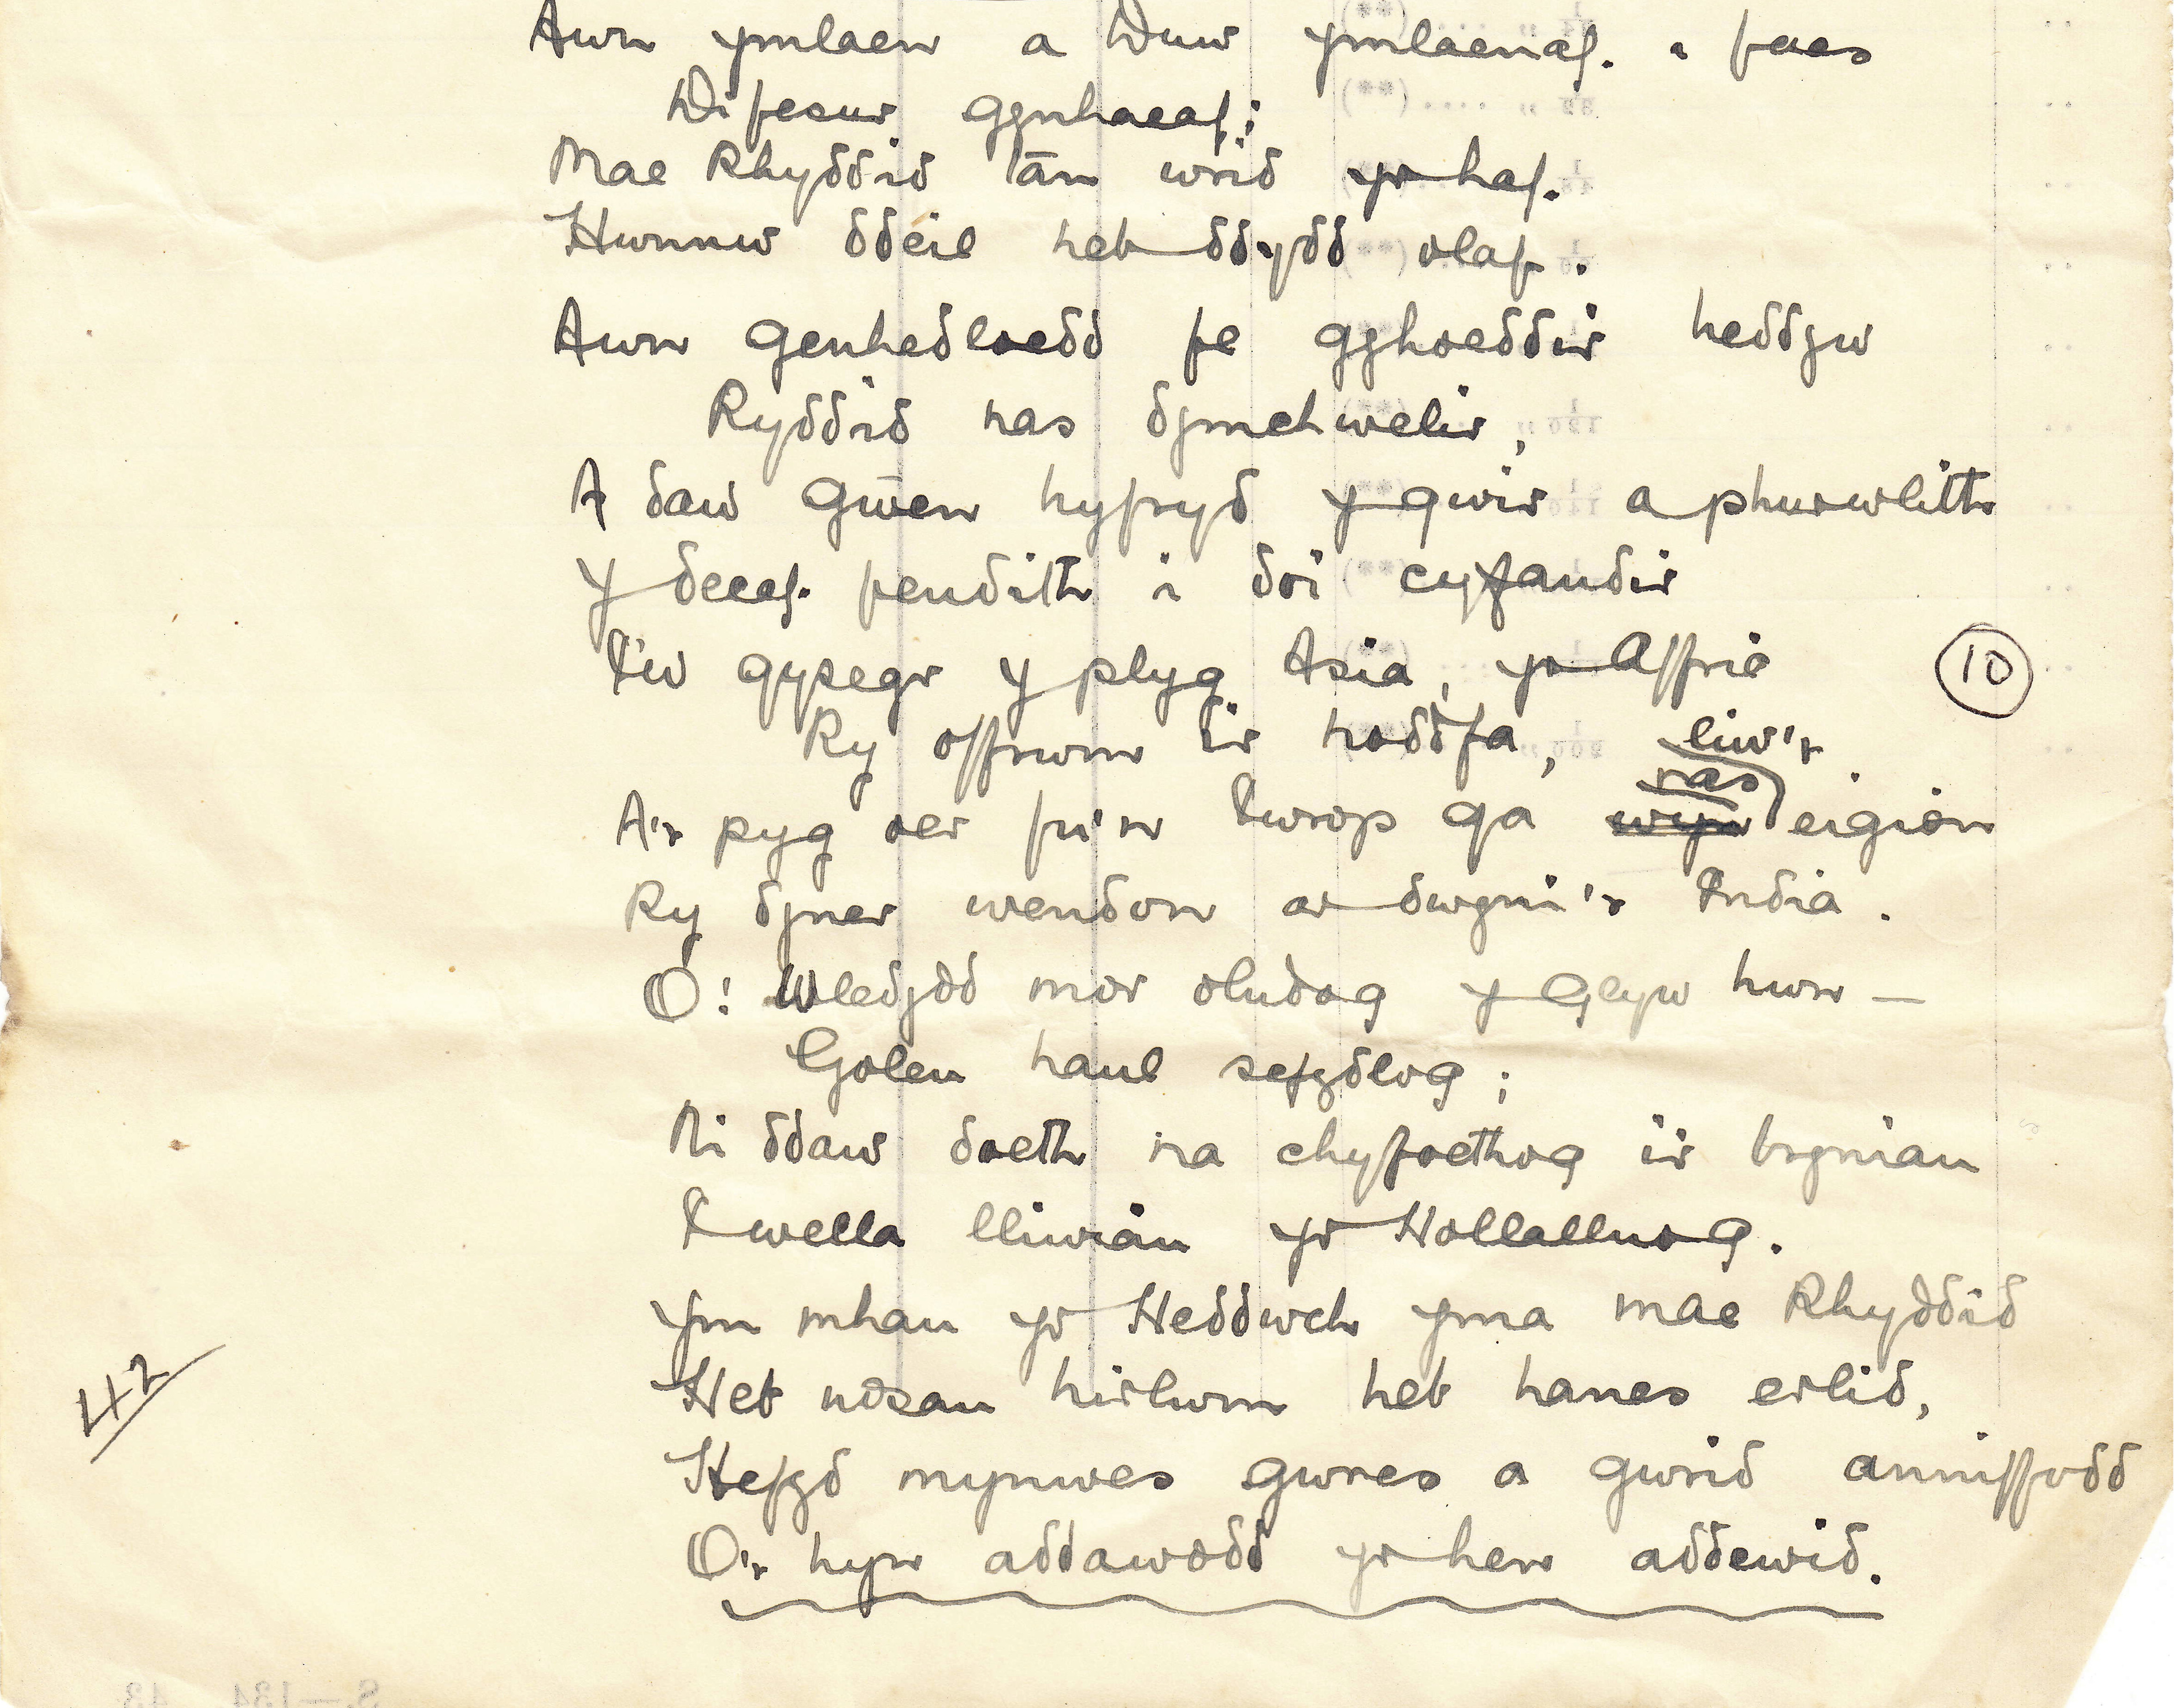 Awn ymlaen a Duw ymlaenaf. i faes
Difesur gynhaeaf;
Mae Rhyddid tān wrid yr haf.
Hwnnw ddeil heb ddydd olaf.
Awn genhedloedd fe gyhoeddir heddyw
Ryddid nas dymchwelir,
A daw gwên hyfryd y gwir a phurwlith
Y decaf fendith i doi cyfandir
I'w gysegr y plyg Asia, yr Affric
Ry offrwm i'r noddfa,
liw'r
ras
A'r pyg oer fu'n Ewrop ga wyn eigion
Ry dyner wendon ar dwyni'r India.
O! Wledydd mor oludog y Glyw hwn —
Goleu haul sefydlog;
Ni ddaw doeth na chyfoethog i'r bryniau
I wella lliwiau yr Hollalluog.
Ym mhau yr Heddwch yma mae Rhyddid
Heb nosau hirlwm heb hanes erlid,
Hefyd mynwes gwres a gwrid anniffodd
O'r hyn addawodd yr hen addewid.
10
42